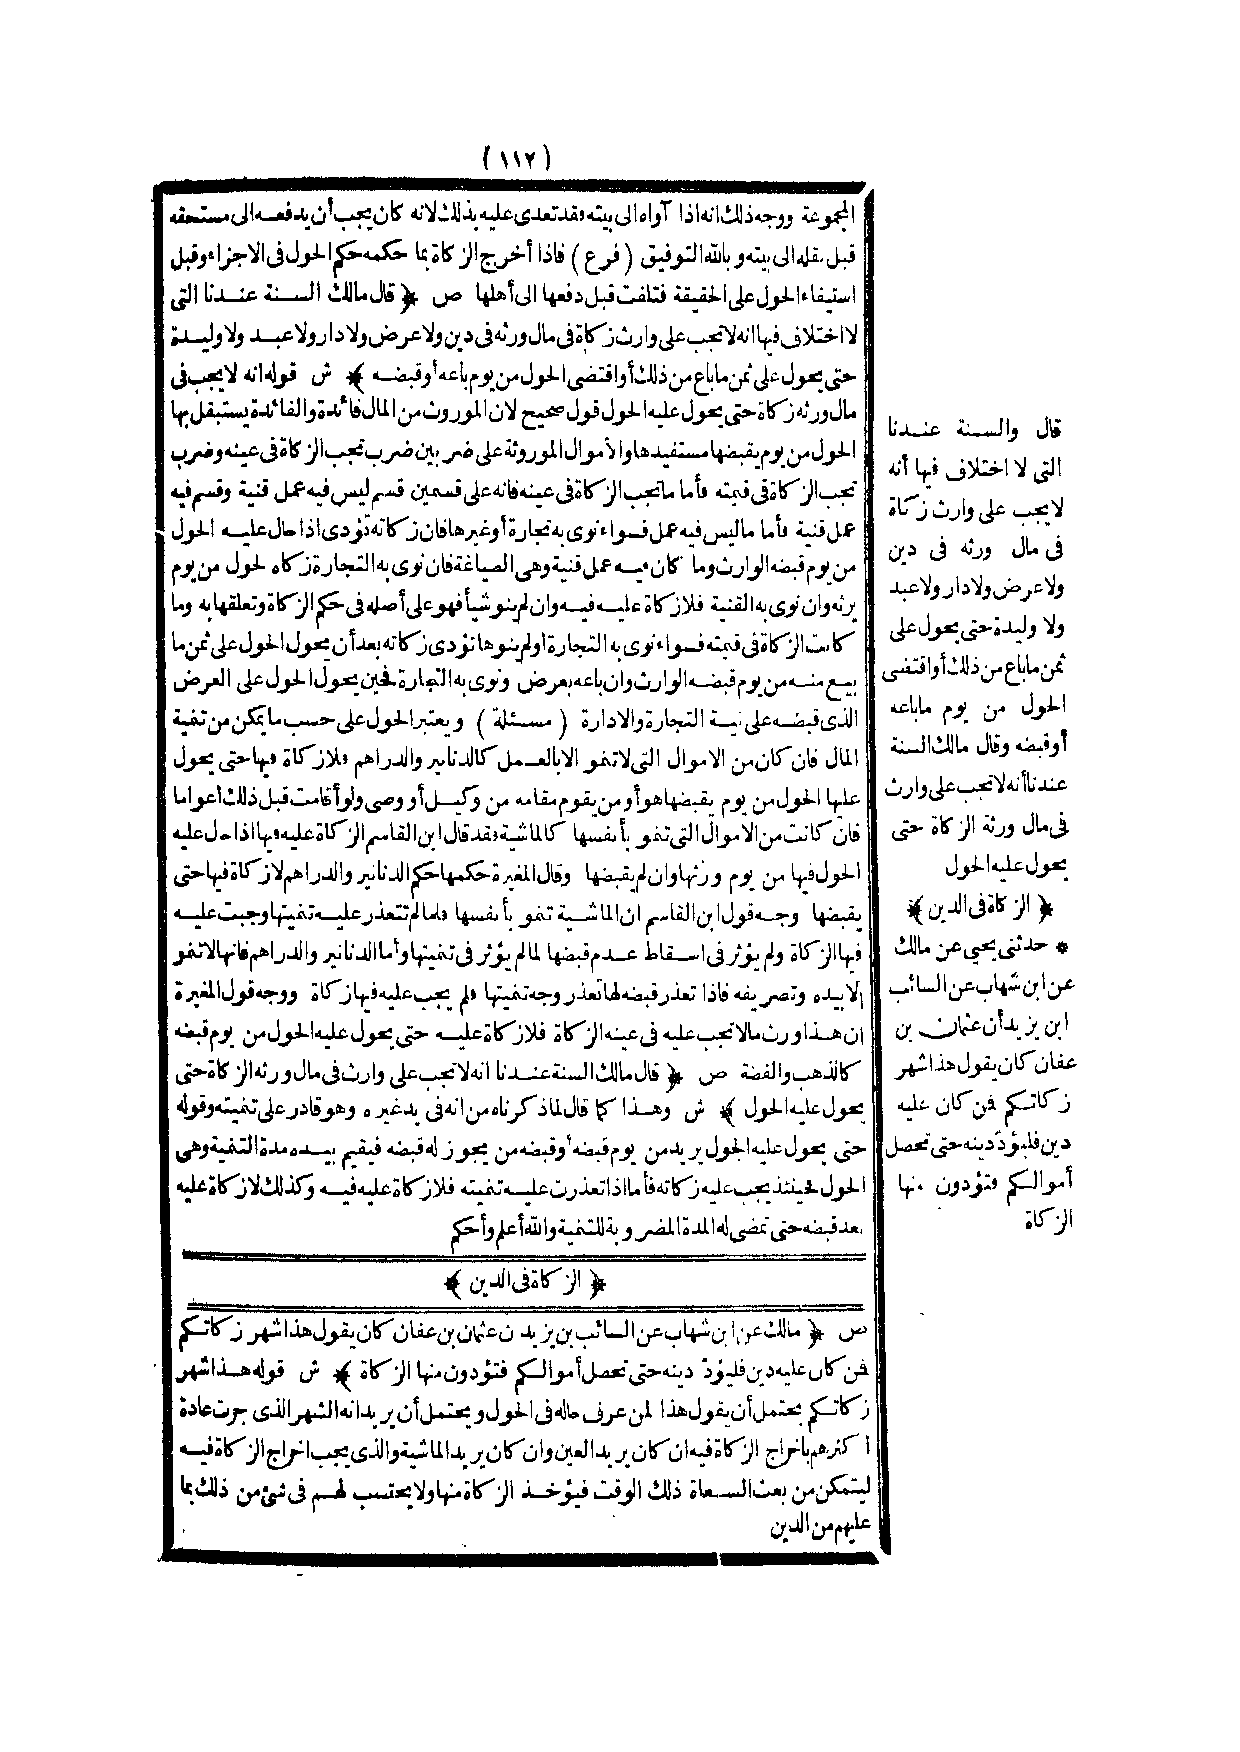 (١١٢)
المجموعة ووجه ذلك انه اذا آواه الى بيته فقد تعدى عليه بذلك لانه كان يجب أن يدفعه الى مستحقه
قبل نقله الى بيته وبالله التوفيق (فرع) فاذا أخرج الزكاة بما حكمه حكم الحول فى الاجزاء وقبل
استيفاء الحول على الحقيقة فتلفت قبل دفعها الى أهلها ص ﴿ قال مالك السنة عندنا التى
لا اختلاف فيها انه لا تجب على وارث زكاة فى مال ورثه فى دين ولا عرض ولا دار ولا عبد ولا وليدة
حتى يحول على ثمن ما باع من ذلك أو اقتضى الحول من يوم باعه أو قبضه ﴾ ش قوله انه لا يجب فى
مال ورثه زكاة حتى يحول عليه الحول قول صحيح لان الموروث من المال فائدة والفائدة يستقبل بها
الحول من يوم يقبضها مستفيدها والأموال الموروثة على ضربين ضرب تجب الزكاة فى عينه وضرب
تجب الزكاة فى قيمته فأما ما تجب الزكاة فى عينه فانه على قسمين قسم ليس فيه عمل قنية وقسم فيه
عمل قنية فأما ما ليس فيه عمل فسواء نوى به تجارة أو غيرها فان زكاته تؤدى اذا حال عليه الحول
من يوم قبضه الوارث وما كان فيه عمل قنية وهى الصياغة فان نوى به التجارة زكاه لحول من يوم
يرثه وان نوى به القنية فلا زكاة عليه فيه وان لم ينو شيأ فهو على أصله فى حكم الزكاة وتعلقها به وما
كانت الزكاة فى قيمته فسواء نوى به التجارة او لم ينوها تؤدى زكاته بعد أن يحول الحول على ثمن ما
بيع منه من يوم قبضه الوارث وان باعه بعرض ونوى به التجارة فحين يحول الحول على العرض
الذى قبضه على نية التجارة والادارة (مسئلة) ويعتبر الحول على حسب ما يمكن من تنمية
المال فان كان من الاموال التى لا تنمو الا بالعمل كالدنانير والدراهم فلا زكاة فيها حتى يحول
عليها الحول من يوم يقبضها هو أو من يقوم مقامه من وكيل أو وصى ولو أقامت قبل ذلك أعواما
فان كانت من الاموال التى تنمو بأنفسها كالماشية فقد قال ابن القاسم الزكاة عليه فيها اذا حال عليه
الحول فيها من يوم ورثها وان لم يقبضها وقال المغيرة حكمها حكم الدنانير والدراهم لا زكاة فيها حتى
يقبضها وجه قول ابن القاسم ان الماشية تنمو بأنفسها فلما لم تتعذر عليه تنميتها وجبت عليه
فيها الزكاة ولم يؤثر فى اسقاط عدم قبضها لما لم يؤثر فى تنميتها وأما الدنانير والدراهم فانها لا تنمو
الا بيده وتصريفه فاذا تعذر قبضه لها تعذر وجه تنميتها فلم يجب عليه فيها زكاة ووجه قول المغيرة
ان هذا ورث مالا تجب عليه فى عينه الزكاة فلا زكاة عليه حتى يحول عليه الحول من يوم قبضه
كالذهب والفضة ص ﴿ قال مالك السنة عندنا انه لا تجب على وارث فى مال ورثه الزكاة حتى
يحول عليه الحول ﴾ ش وهذا كما قال لما ذكرناه من انه فى يد غيره وهو قادر على تنميته وقوله
حتى يحول عليه الحول يريد من يوم قبضه أو قبضه من يجوز له قبضه فيقيم بيده مدة التنمية وهى
الحول فحينئذ يجب عليه زكاته فأما اذا تعذرت عليه تنميته فلا زكاة عليه فيه وكذلك لا زكاة عليه
بعد قبضه حتى تمضى له المدة المضروبة للتنمية والله أعلم وأحكم
﴿ الزكاة فى الدين ﴾
ص ﴿ مالك عن ابن شهاب عن السائب بن يزيد ن عثمان بن عفان كان يقول هذا شهر زكاتكم
فمن كان عليه دين فليؤد دينه حتى تحصل أموالكم فتؤدون منها الزكاة ﴾ ش قوله هذا شهر
زكاتكم يحتمل أن يقول هذا لمن عرف حاله فى الحول ويحتمل أن يريد انه الشهر الذى جرت عادة
أكثرهم باخراج الزكاة فيه ان كان يريد العين وان كان يريد الماشية والذى يجب اخراج الزكاة فيه
ليتمكن من بعث السعاة ذلك الوقت فيؤخذ الزكاة منها ولا يحتسب لهم فى شئ من ذلك بما
عليهم من الدين
قال والسنة عندنا
التى لا اختلاف فيها أنه
لا يجب على وارث زكاة
فى مال ورثه فى دين
ولا عرض ولا دار ولا عبد
ولا وليدة حتى يحول على
ثمن ما باع من ذلك أو اقتضى
الحول من يوم ما باعه
أو قبضه وقال مالك السنة
عندنا أنه لا تجب على وارث
فى مال ورثه الزكاة حتى
يحول عليه الحول
﴿ الزكاة فى الدين ﴾
* حدثنى يحيى عن مالك
عن ابن شهاب عن السائب
ابن يزيد أن عثمان بن
عفان كان يقول هذا شهر
زكاتكم فمن كان عليه
دين فليؤدّ دينه حتى تحصل
أموالكم فتؤدون منها
الزكاة